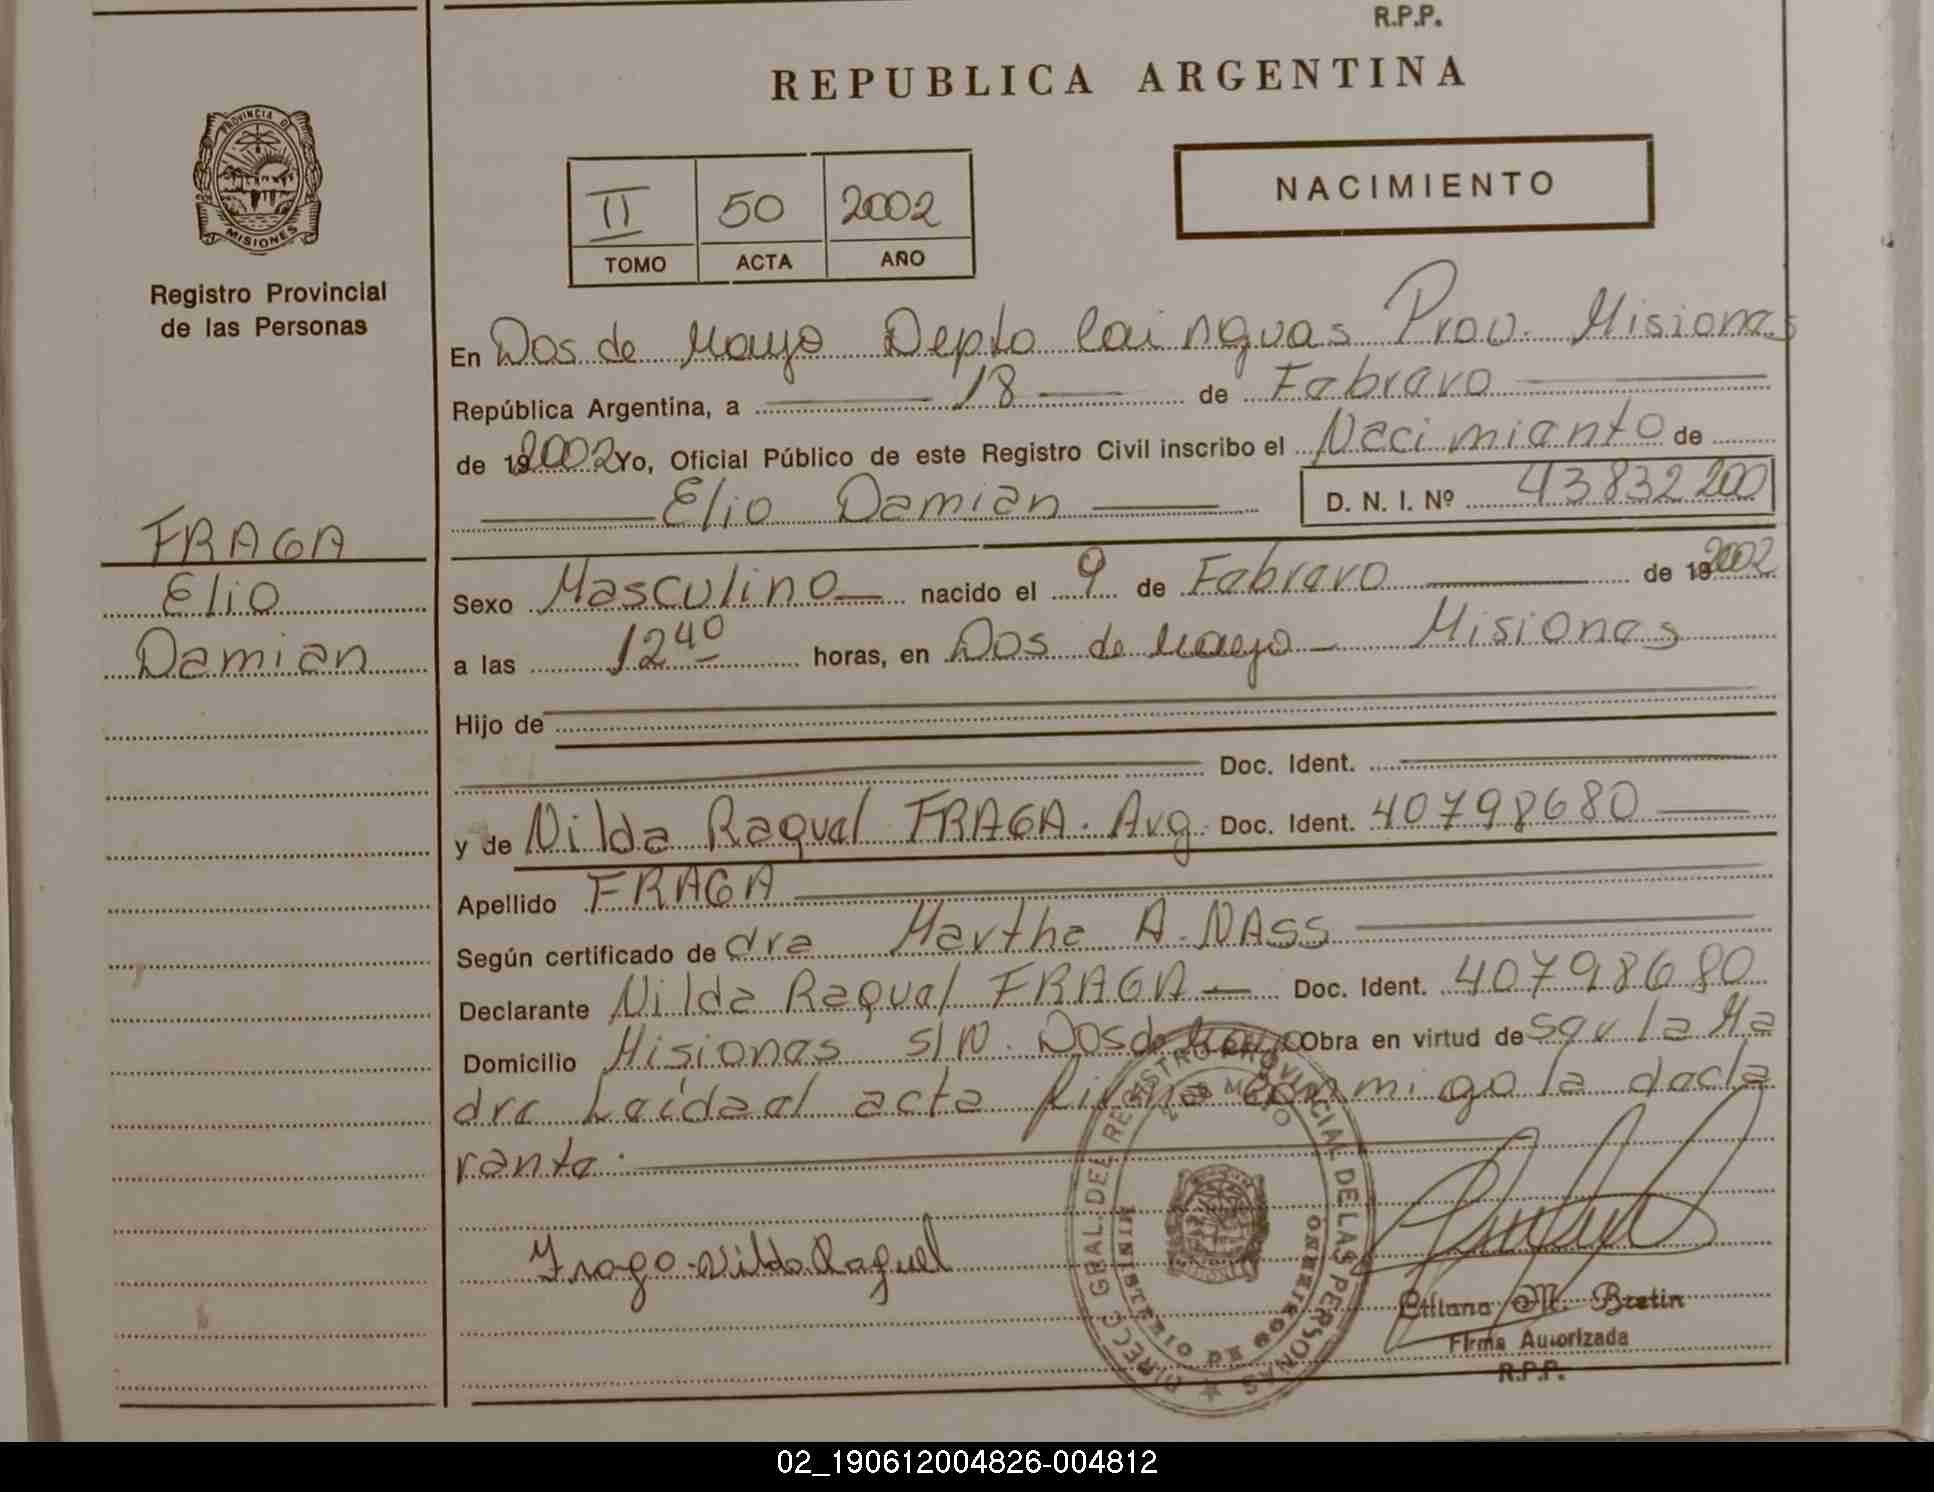 R.P.P.
REPUBLICA ARGENTINA
PROVINCIA DE
MISIONES
Registro Provincial
de las Personas
II 50 2002
TOMO ACTA AÑO
NACIMIENTO
En Dos de Mayo Depto Cainguas Prov. Misiones
República Argentina, a 18 de Febrero
de 19 2002 Yo, Oficial Público de este Registro Civil inscribo el Nacimiento de
Elio Damian D. N. I. Nº 43832200
FRAGA
Elio
Damian
Sexo Masculino nacido el 9 de Febrero de 19 2002
a las 12 40 horas, en Dos de Mayo - Misiones
Hijo de
Doc. Ident.
y de Nilda Raquel FRAGA. Arg. Doc. Ident. 40798680
Apellido FRAGA
Según certificado de dra Martha A. NASS
Declarante Nilda Raquel FRAGA - Doc. Ident. 40798680
Domicilio Misiones S/N. Dos de Mayo Obra en virtud de ser la Ma
dre Leída el acta firma conmigo la decla
rante.
Fraga Nilda Raquel
DIRECC. GRAL. DEL REGISTRO PROVINCIAL DE LAS PERSONAS
2 DE MAYO
MINISTERIO DE GOBIERNO
M. Bretin
Firma Autorizada
R.P.P.
02_190612004826-004812